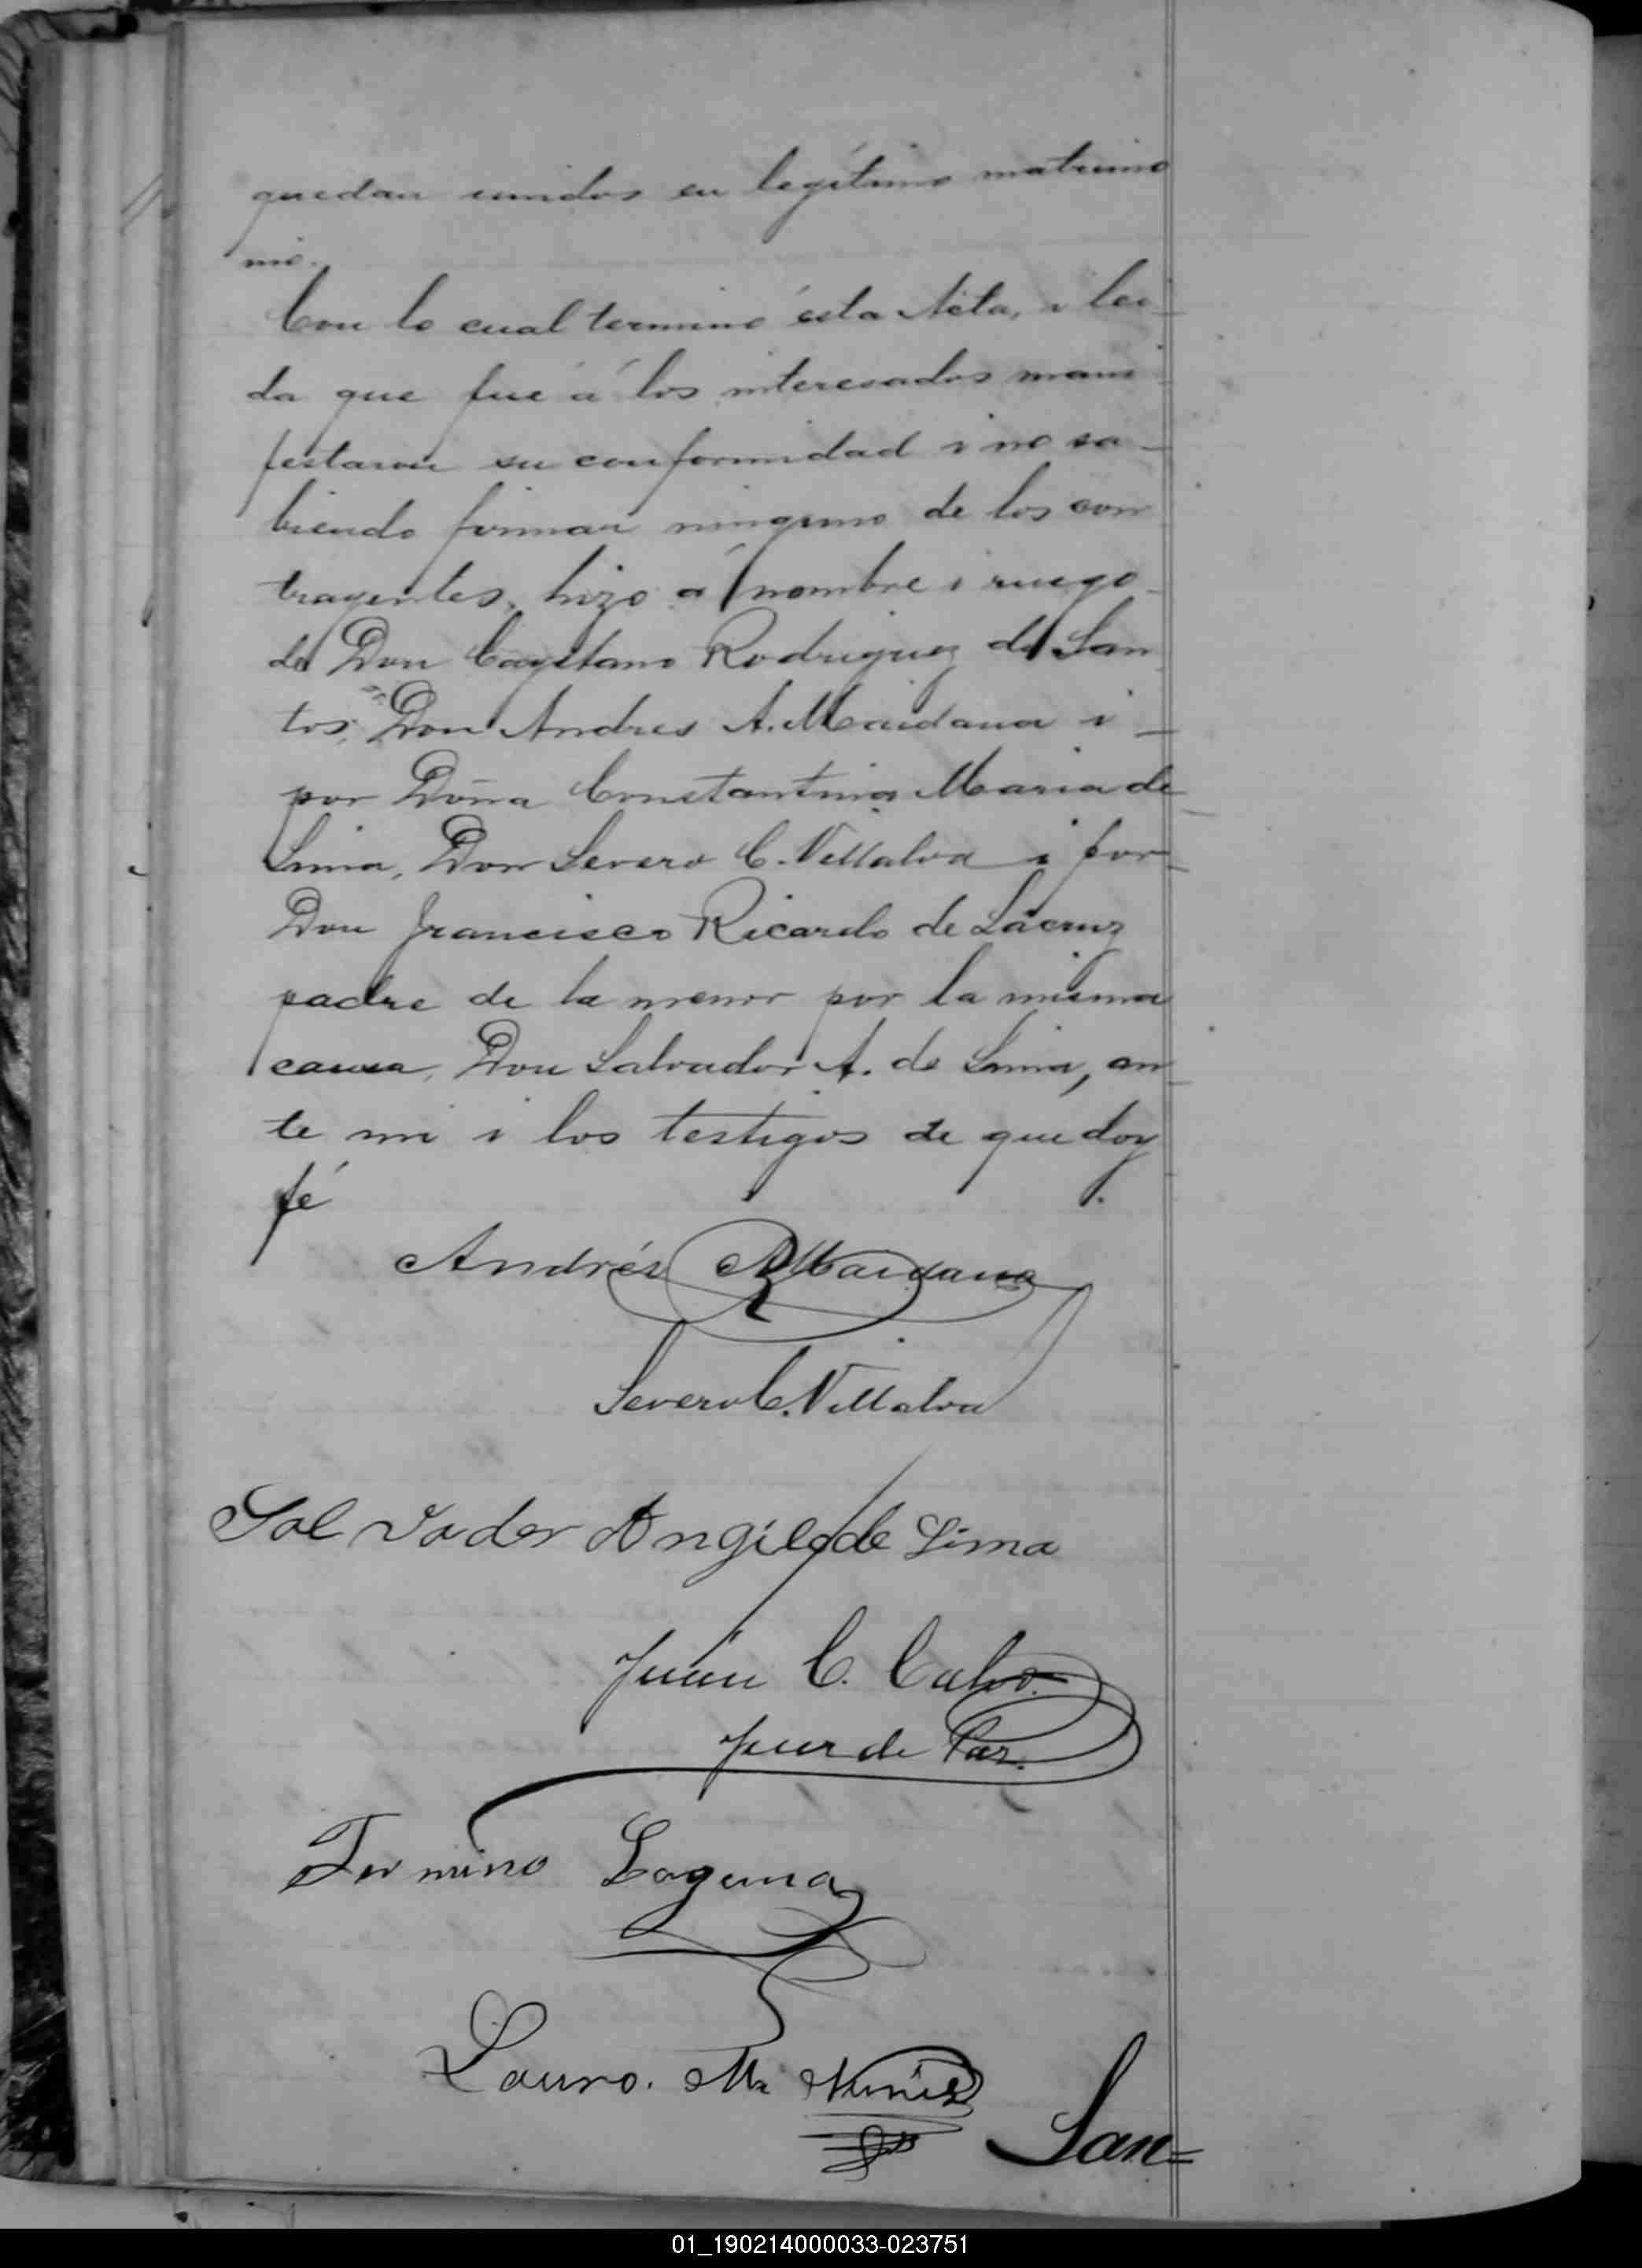 quedan unidos en legítimo matrimo
nio.
Con lo cual terminó ésta Acta, i lei
da que fué á los interesados mani
festaron su conformidad i no sa-
biendo firmar ninguno de los con
trayentes, hizo á nombre i ruego
de Don Cayetano Rodriguez de San
tos, Don Andres A. Maidana i
por Doña Constantina Maria de
Lima, Don Severo C. Villalva i por
Don Francisco Ricardo de Lacruz
padre de la menor por la misma
causa, Don Salvador A. de Lima, an
te mi i los testigos de que doy
fé
Andrés A Maidana
Severo C. Villalva
Salvador Angel de Lima
Juan C. Calvo.
Juez de Paz.
Laguna
Lauro. M. Nuñez
San=
01_190214000033-023751